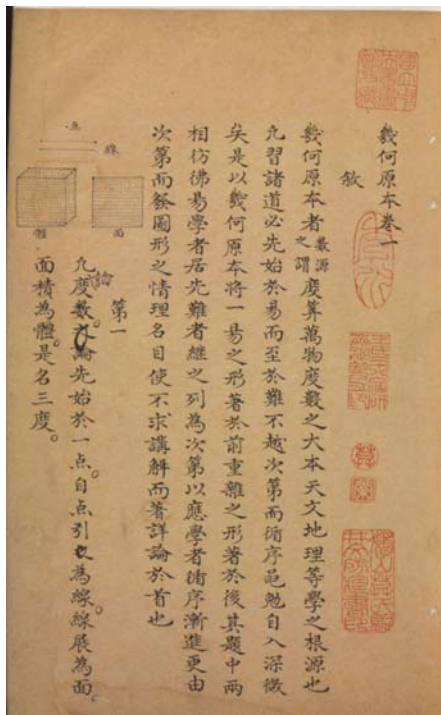 幾何原本卷一
敘
幾何原本者數源之謂度算萬物度數之大本天文地理等學之根源也
凡習諸道必先始於易而至於難不越次第而循序黽勉自入深微
矣是以幾何原本將一易之形著於前重雜之形著於後其題中兩
相彷彿易學者居先難者繼之列為次第以應學者循序漸進更由
次第而發圖形之情理名目使不求講解而著詳論於首也
第一
凡度數之論先始於一点自点引之為線線展為面
面積為體是名三度
点
線
面
體
論